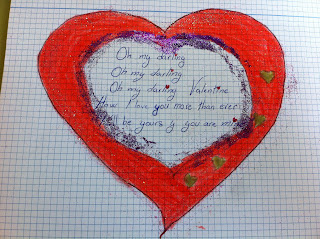 Oh my darling
Oh my darling
Oh my darling Valentine
How I love you more than ever
I'll be yours if you are mine